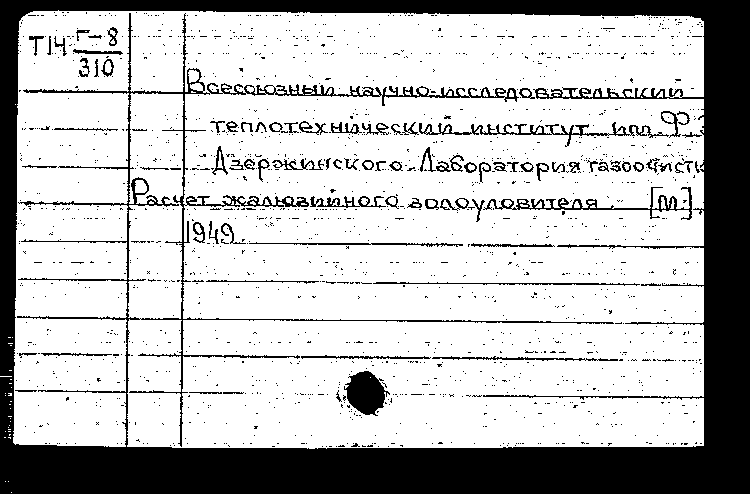 Т14 Г-8
310
Всесоюзный научно-исследовательский
теплотехнический институт им. Ф.Э
Дзержинского. Лаборатория газоочистк
Расчет жалюзийного золоуловителя. [М.].
1949.